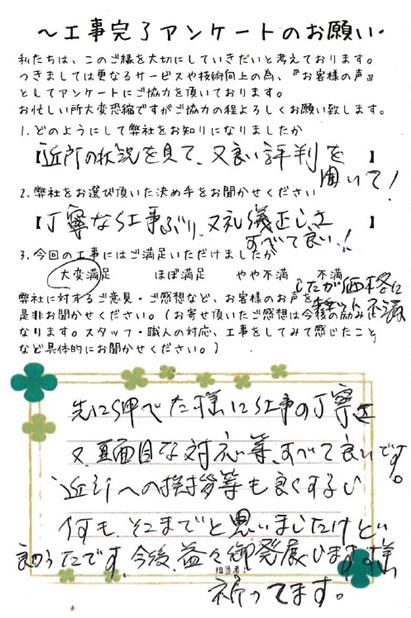 ～工事完了アンケートのお願い～
私たちは、このご縁を大切にしていきたいと考えております。
つきましては更なるサービスや技術向上の為、『お客様の声』
としてアンケートにご協力を頂いております。
お忙しい所大変恐縮ですがご協力の程よろしくお願い致します。
1.どのようにして弊社をお知りになりましたか
【近所の状況を見て、又良い評判を
聞いて!】
2.弊社をお選び頂いた決め手をお聞かせください
【丁寧な仕事ぶり、又礼儀正しさ
すべて良い!】
3.今回の工事にはご満足いただけましたか
大変満足 ほぼ満足 やや不満 不満
したが価格に
弊社に対するご意見・ご感想など、お客様のお声を
是非お聞かせください。(お寄せ頂いたご感想は今後の励み
なります。スタッフ・職人の対応、工事をしてみて感じたこと
など具体的にお聞かせください。)
先に伸べた様に仕事の丁寧さ
又、真面目な対応等、すべて良いです。
近引への挨拶等も良くするし
何も、そこまでと思いましたけど
良かったです、今後、益々御発展します様
担当者:
祈ってます。